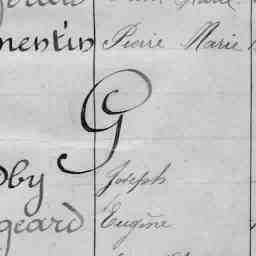 mentin Pierre Marie
G
by Joseph
geard Eugène